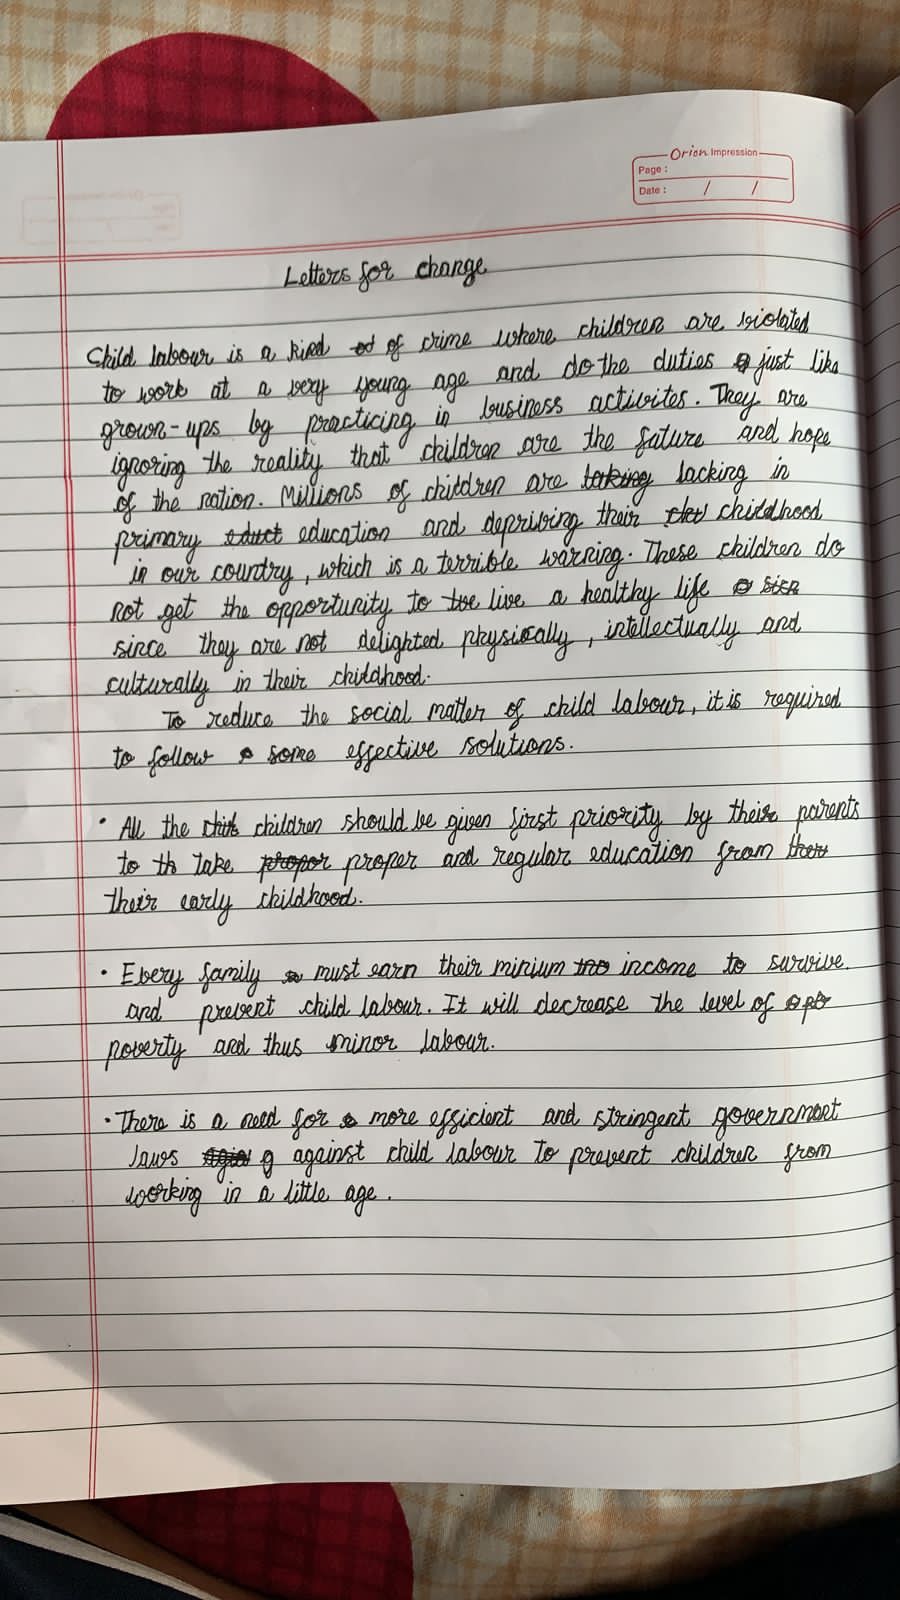 Orion Impression
Page :
Date : / /
Letters for change
Child labour is a kind of crime where children are violated
to work at a very young age and do the duties just like
grown-ups by practicing in business activites. They are
ignoring the reality that children are the future and hope
of the nation. Millions of children are lacking in
primary education and depriving their childhood
in our country, which is a terrible warning. These children do
not get the opportunity to live a healthy life
since they are not delighted physically, intellectually and
culturally in their childhood.
To reduce the social matter of child labour, it is required
to follow some effective solutions.
• All the children should be given first priority by their parents
to take proper and regular education from
their early childhood.
• Every family must earn their minium income to survive.
and prevent child labour. It will decrease the level of
poverty and thus minor labour.
• There is a need for more efficient and stringent government
laws against child labour to prevent children from
working in a little age.